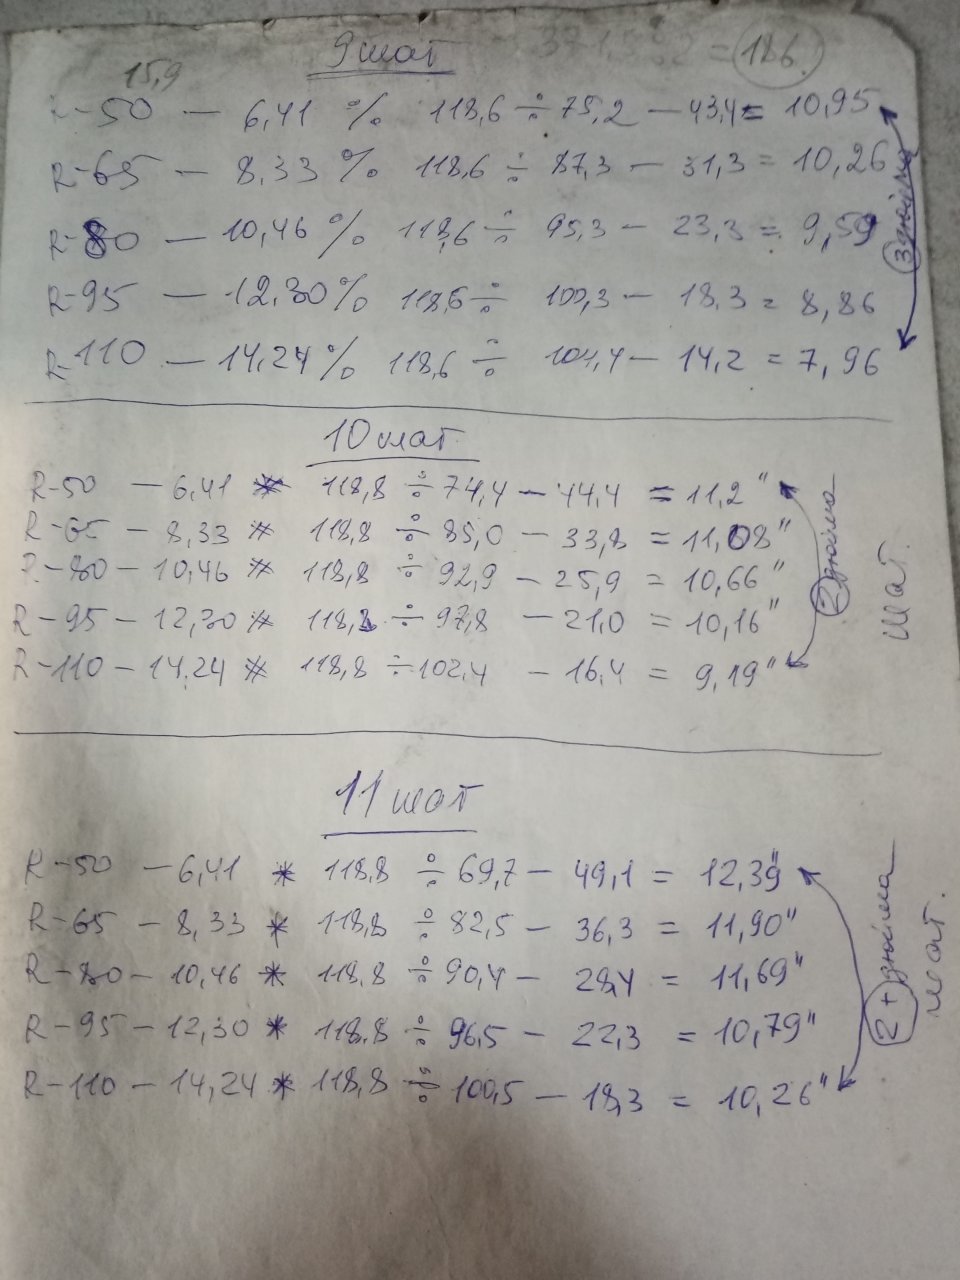 9 шаг
15,9
371,5:2 = 186.
R-50 — 6,41 % 118,6 ÷ 75,2 — 43,4 = 10,95
R-65 — 8,33 % 118,6 ÷ 87,3 — 31,3 = 10,26
R-80 — 10,46 % 118,6 ÷ 95,3 — 23,3 = 9,59
R-95 — 12,30 % 118,6 ÷ 100,3 — 18,3 = 8,86
R-110 — 14,24 % 118,6 ÷ 104,4 — 14,2 = 7,96
3 дюйма
10 шаг
R-50 — 6,41 * 118,8 ÷ 74,4 — 44,4 = 11,2"
R-65 — 8,33 * 118,8 ÷ 85,0 — 33,8 = 11,08"
R-80 — 10,46 * 118,8 ÷ 92,9 — 25,9 = 10,66"
R-95 — 12,30 * 118,8 ÷ 97,8 — 21,0 = 10,16"
R-110 — 14,24 * 118,8 ÷ 102,4 — 16,4 = 9,19"
2 дюйма
шаг.
11 шаг
R-50 — 6,41 * 118,8 ÷ 69,7 — 49,1 = 12,39"
R-65 — 8,33 * 118,8 ÷ 82,5 — 36,3 = 11,90"
R-80 — 10,46 * 118,8 ÷ 90,4 — 28,4 = 11,69"
R-95 — 12,30 * 118,8 ÷ 96,5 — 22,3 = 10,79"
R-110 — 14,24 * 118,8 ÷ 100,5 — 18,3 = 10,26"
2+ дюйма
шаг.